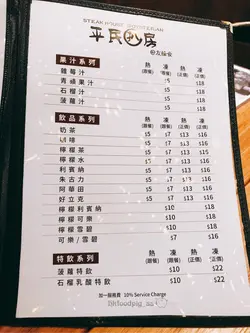 STEAK HOUSE
平民 房
果汁系列 熱 凍 熱 凍
(跟餐) (跟餐) (正價) (正價)
雜莓汁 $5 $18
青檸果汁 $5 $18
石榴汁 $5 $18
菠蘿汁 $5 $18
飲品系列 熱 凍 熱 凍
(跟餐) (跟餐) (正價) (正價)
奶茶 $5 $7 $13 $16
咖啡 $5 $7 $13 $16
檸檬茶 $5 $7 $13 $16
檸檬水 $5 $7 $13 $16
利賓納 $5 $7 $13 $16
朱古力 $5 $7 $13 $16
阿華田 $5 $7 $13 $16
好立克 $5 $7 $13 $16
檸檬利賓納 $10 $18
檸檬可樂 $10 $18
檸檬雪碧 $10 $18
可樂/雪碧 $5 $16
特飲系列 凍 凍
(跟餐) (正價)
菠蘿特飲 $10 $22
石榴乳酸特飲 $10 $22
加一服務費 10% Service Charge